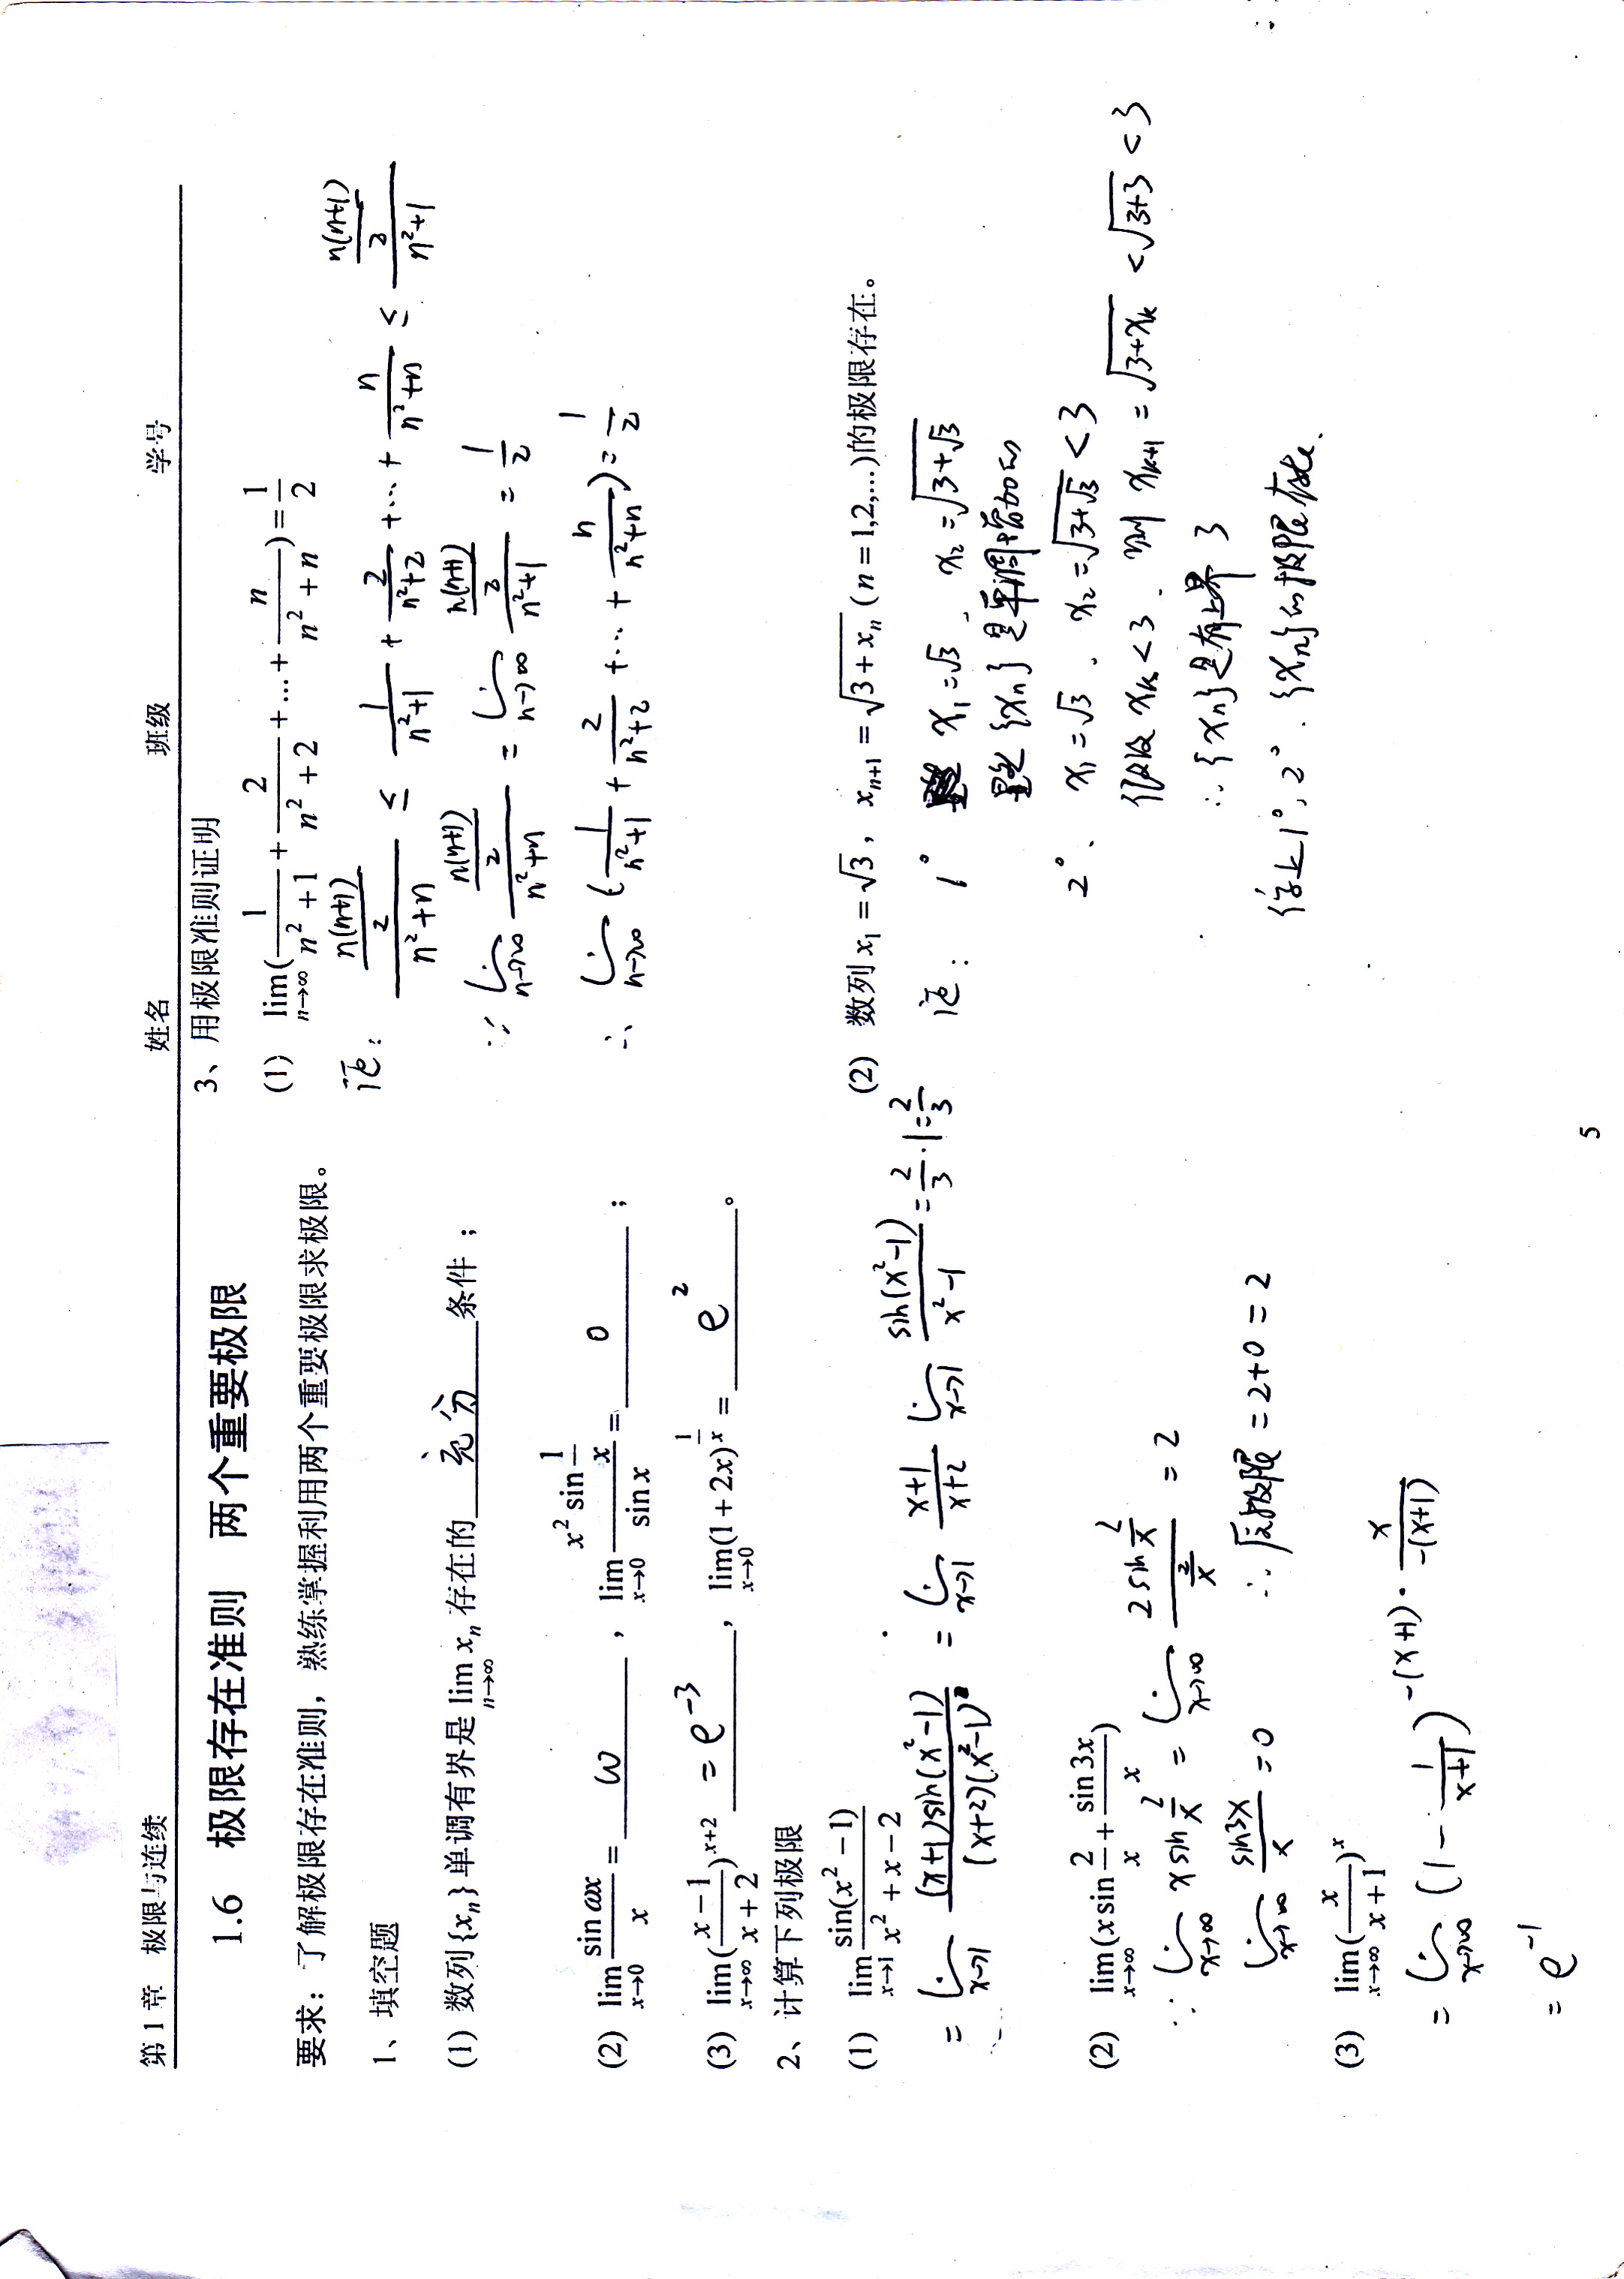 第 1 章 极限与连续 姓名 班级 学号
1.6 极限存在准则 两个重要极限
要求：了解极限存在准则，熟练掌握利用两个重要极限求极限。
1、填空题
(1) 数列{xₙ}单调有界是 lim_{n→∞} xₙ 存在的 充分 条件；
(2) lim_{x→0} (sin ωx)/x = ω ，lim_{x→0} (x² sin (1/x))/(sin x) = 0 ；
(3) lim_{x→∞} ((x−1)/(x+2))^{x+2} = e⁻³ ，lim_{x→0} (1+2x)^{1/x} = e² 。
2、计算下列极限
(1) lim_{x→1} sin(x²−1)/(x²+x−2)
= lim_{x→1} (x+1)sin(x²−1)/((x+2)(x²−1)) = lim_{x→1} (x+1)/(x+2) lim_{x→1} sin(x²−1)/(x²−1) = 2/3 · 1 = 2/3
(2) lim_{x→∞} (x sin (2/x) + (sin 3x)/x)
∵ lim_{x→∞} x sin (2/x) = lim_{x→∞} (2 sin (2/x))/(2/x) = 2
lim_{x→∞} (sin3x)/x = 0 ∴ 原极限 = 2+0 = 2
(3) lim_{x→∞} (x/(x+1))^x
= lim_{x→∞} (1 − 1/(x+1))^{−(x+1)· x/(−(x+1))}
= e⁻¹
3、用极限准则证明
(1) lim_{n→∞} (1/(n²+1) + 2/(n²+2) + ... + n/(n²+n)) = 1/2
证： (n(n+1)/2)/(n²+n) ≤ 1/(n²+1) + 2/(n²+2) + ... + n/(n²+n) ≤ (n(n+1)/2)/(n²+1)
∵ lim_{n→∞} (n(n+1)/2)/(n²+n) = lim_{n→∞} (n(n+1)/2)/(n²+1) = 1/2
∴ lim_{n→∞} (1/(n²+1) + 2/(n²+2) + ... + n/(n²+n)) = 1/2
(2) 数列 x₁ = √3， xₙ₊₁ = √(3+xₙ) (n = 1,2,...)的极限存在。
证： 1° x₁=√3 、 x₂ = √(3+√3)
显然 {xₙ} 是单调增加的
2°、 x₁=√3 、 x₂ = √(3+√3) < 3
假设 xₖ<3 、 则 xₖ₊₁ = √(3+xₖ) < √(3+3) < 3
∴ {xₙ} 是有上界 3
综上 1°、2° 、{xₙ}的极限存在.
5